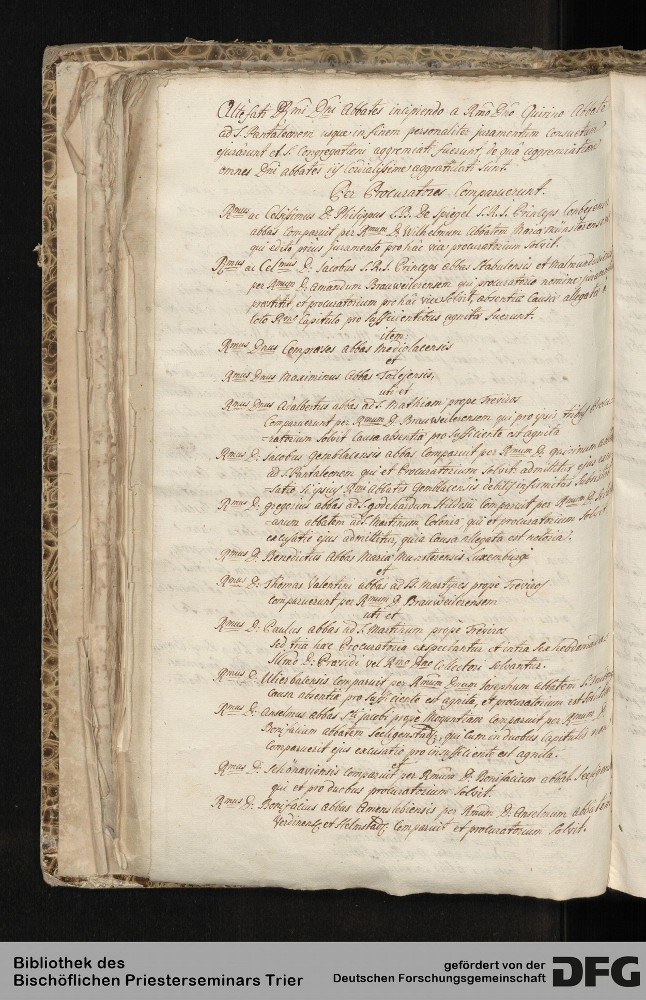 Altè fati RRmi Dni Abbates incipiendo a Rmo Dno Quirino Abbate
ad S. Pantaleonem usque in finem personaliter juramentum consuetum
ejurârunt et S. Congregationi aggremiati fuerunt de quâ aggremiatione
omnes Dni abbates iis aggratulati sunt.
Per Procuratores Comparuerunt.
Rmus ac Celsissimus D. Philippus L.B. De Spiegel S.R.I. Princeps Corbejensis
abbas Comparuit per Rmum D. Wilhelmum abbatem Mariæ münsterensem
qui edito priùs Juramento pro hac vice procuratorium solvit.
Rmus ac Celmus D. Jacobus S.R.I. Princeps abbas Stabulensis et Malmundariensis
per Rmum D. amandum Brauweilerensem qui procuratorio nomine juramentum
præstitit, et procuratorium pro hâc vice solvit, absentiæ Causæ allegatæ a
toto Rmo Capitulo pro sufficientibus agnitæ fuerunt.
item:
Rmus Dnus Comprases abbas Mediolacensis
et
Rmus Dnus Maximinus Abbas Tolejensis,
uti et
Rmus Dnus Adalbertus abbas ad S. Mathiam prope Treviros
Comparuerunt per Rmum D. Brauweilerensem qui pro ipsis tribus procu-
-ratorium solvit Causa absentiæ pro sufficiente est agnita
Rmus D. Jacobus Gemblacensis abbas Comparuit per Rmum D. Quirinum abbatem
ad S. Pantaleonem qui et Procuratorium Solvit: admittitur ejus excu-
-satio si ipsius Rmi Abbatis Gemblacensis debitis infirmitas
Rmus D. gregorius abbas ad S. godehardum Hildesii Comparuit per Rmum D.
-arum abbatem ad S. Martinum Coloniæ qui et procuratorium Solvit
excusatio ejus admittitur, quia Causa allegata est notoria.
Rmus D. Benedictus Abbas Mariæ Munsterensis Luxemburgi
et
Rmus D. Thomas Valentini abbas ad SS. Martyres prope Treviros
Comparuerunt per Rmum D. Brauweilerensem
uti et
Rmus D. Paulus abbas ad S. Martinum prope Treviros
sed tria hæc Procuratoria expectantur et intra sex hebdomadas
Illmo D. Præsidi vel Rmo Dno Collectori solvantur.
Rmus D. Comparuit per Rmum Dnum Josephum abbatem
Causa absentiæ pro sufficiente est agnita, et procuratorium est solutum
Rmus D. Anselmus abbas Sti Jacobi prope Moguntiam Comparuit per Rmum D.
Bonifacium abbatem Seeligenstadii, qui Cum in duobus Capitulis non
Comparuerit ejus excusatio pro insufficiente est agnita.
et
Rmus D. Schönaviensis Comparuit per Rmum D. Bonifacium abbat. Seeligenst.
qui et pro duobus procuratorium solvit.
Rmus D. Bonifacius abbas Amenslebiensis per Rmum D. Anselmum abbatem
Werdinens. et Helmstad. Comparuit et procuratorium solvit.
Bibliothek des
Bischöflichen Priesterseminars Trier
gefördert von der
Deutschen Forschungsgemeinschaft
DFG